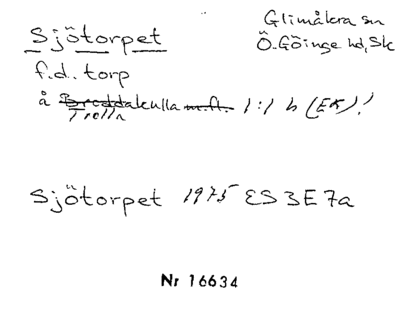 Sjötorpet
Glimåkra sn
Ö. Göinge hd, Sk
f.d. torp
å Breddakulla m.fl. 1:1 h (EK)!
Trolla
Sjötorpet 1975 ES 3E7a
Nr 16634